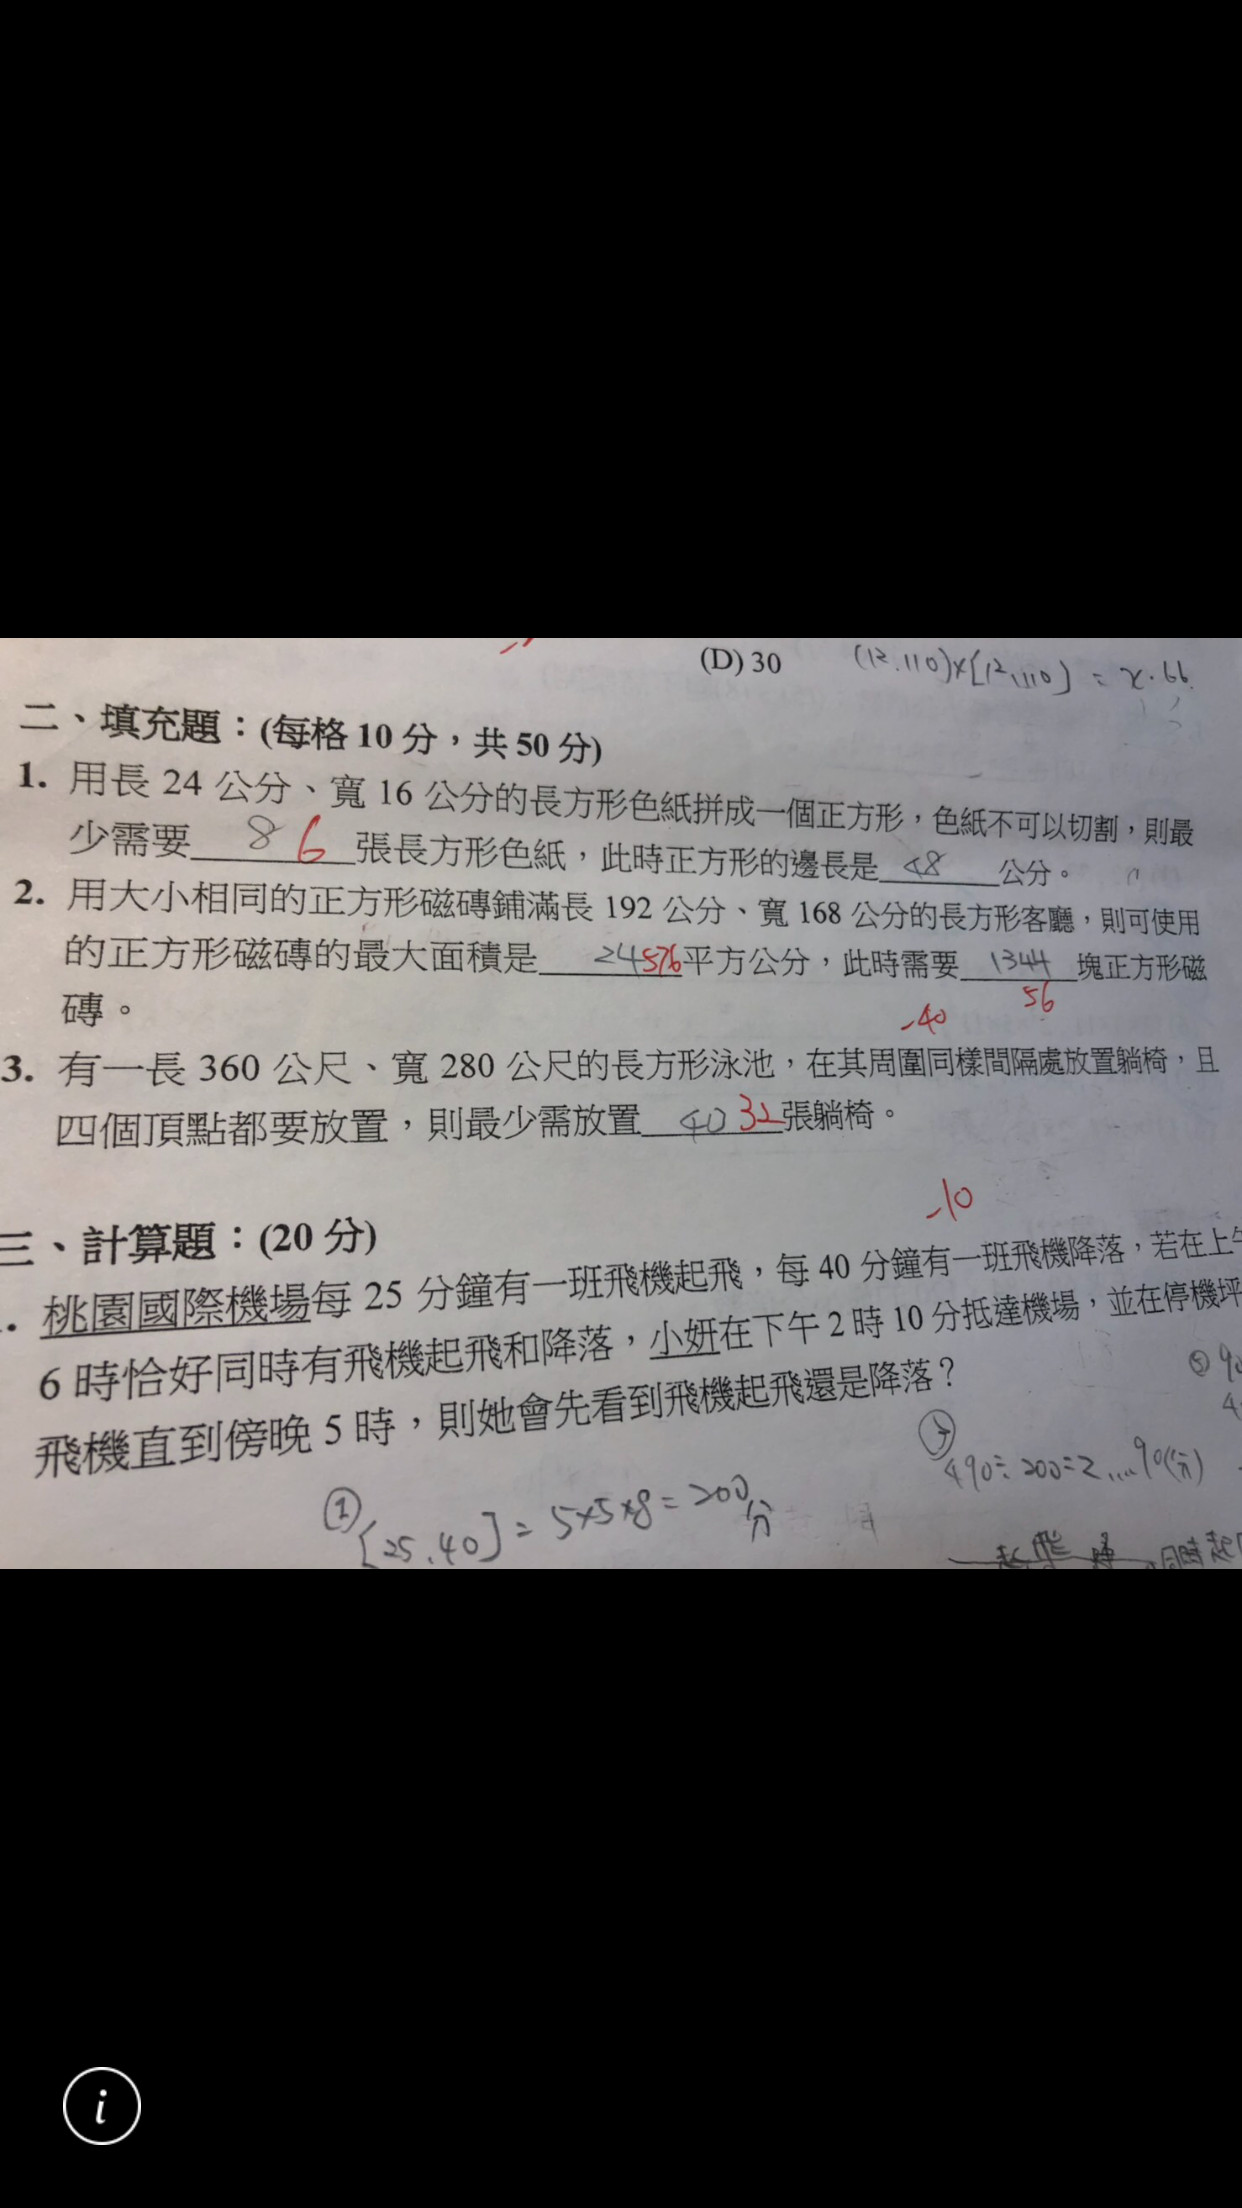 (D) 30 (12.110)×[12.110] = x.66
二、填充題：(每格 10 分，共 50 分)
1. 用長 24 公分、寬 16 公分的長方形色紙拼成一個正方形，色紙不可以切割，則最
少需要 8 6 張長方形色紙，此時正方形的邊長是 48 公分。
2. 用大小相同的正方形磁磚鋪滿長 192 公分、寬 168 公分的長方形客廳，則可使用
的正方形磁磚的最大面積是 24 576 平方公分，此時需要 1344 塊正方形磁
56
磚。
-40
3. 有一長 360 公尺、寬 280 公尺的長方形泳池，在其周圍同樣間隔處放置躺椅，且
四個頂點都要放置，則最少需放置 40 32 張躺椅。
-10
三、計算題：(20 分)
. 桃園國際機場每 25 分鐘有一班飛機起飛，每 40 分鐘有一班飛機降落，若在上午
6 時恰好同時有飛機起飛和降落，小妍在下午 2 時 10 分抵達機場，並在停機坪
飛機直到傍晚 5 時，則她會先看到飛機起飛還是降落？
490÷200=2...90(分)
① [25.40] = 5×5×8 = 200分
同時起
i